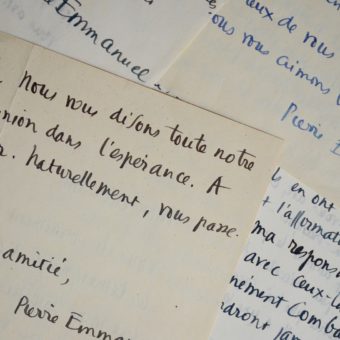 Emmanuel
eux de nous
ous vous aimons
Pierre E
. Nous vous disons toute notre
nion dans l'espérance. A
r. Naturellement, vous passe
amitié,
Pierre Emma
s en ont
t l'affirmat
ma respons
avec ceux-l
nément Comba
ndront jam